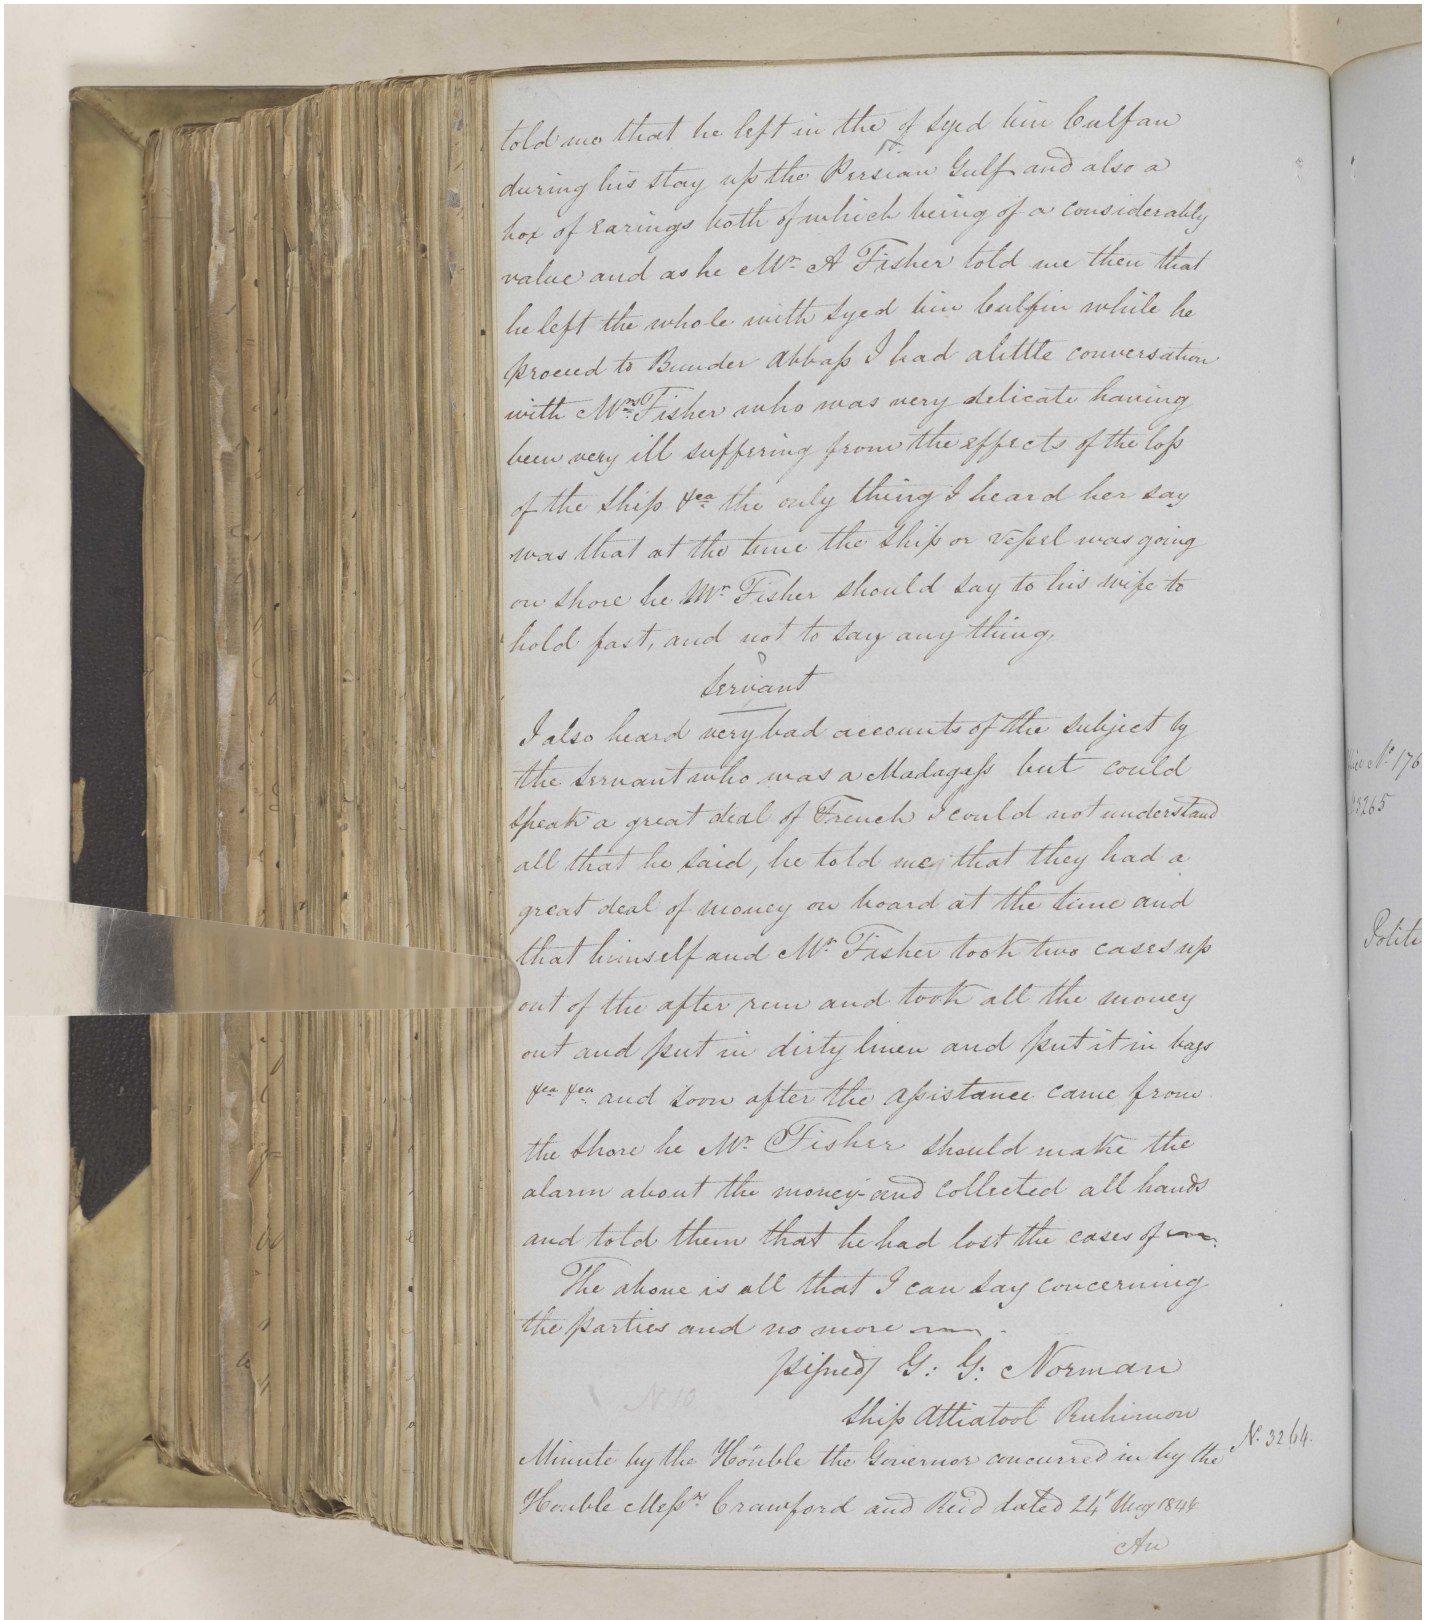 told me that he left in the of Syed bin Culfan
during his stay up the Persian Gulf and also a
box of Earings both of which being of a considerably
value and as he Mr. A Fisher told me then that
he left the whole with Syed bin Culfin while he
proceed to Bunder Abbass I had a little conversation
with Mrs. Fisher who was very delicate having
been very ill suffering from the effects of the loss
of the Ship &ca the only thing I heard her say
was that at the time the Ship or Vessel was going
on shore he Mr. Fisher should say to his wife to
hold fast, and not to say any thing,
Servant
I also heard very bad accounts of the subject by
the Servant who was a Madagass but could
speak a great deal of French I could not understand
all that he said, he told me that they had a
great deal of money on board at the time and
that himself and Mr. Fisher took two cases up
out of the after run and took all the money
out and put in dirty linen and put it in bags
&ca &ca and soon after the assistance came from
the shore he Mr. Fisher should make the
alarm about the money and collected all hands
and told them that he had lost the cases of
The above is all that I can say concerning
the parties and no more
signed G: G: Norman
Ship Attiatool Ruhimon
No. 3264.
Minute by the Honble the Governor concurred in by the
Honble Messrs Crawford and Reid dated 24 May 184
An
No. 176
3265
Polit
N 10